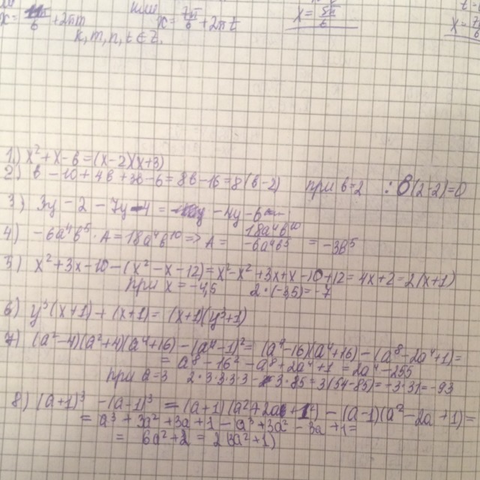 или
k, m, n, t ∈ Z.
1) x² + x - 6 = (x-2)(x+3)
2) b - 10 + 4b + 3b - 6 = 8b - 16 = 8(b-2) при b=2 : 8(2-2)=0
3) 3y - 2 - 7y - 4 = -4y - 6
4) -6a⁴b⁵ · A = 18a⁴b¹⁰ => A = 18a⁴b¹⁰ / -6a⁴b⁵ = -3b⁵
5) x² + 3x - 10 - (x² - x - 12) = x² - x² + 3x + x - 10 + 12 = 4x + 2 = 2(x+1)
при x = -4,5 2·(-3,5) = -7
6) y³(x+1) + (x+1) = (x+1)(y³+1)
7) (a²-4)(a²+4)(a⁴+16) - (a⁴-1)² = (a⁴-16)(a⁴+16) - (a⁸-2a⁴+1) =
= a⁸ - 16² - a⁸ + 2a⁴ + 1 = 2a⁴ - 255
при a=3 2·3·3·3·3 - 3·85 = 3(54-85) = -3·31 = -93
8) (a+1)³ - (a-1)³ = (a+1)(a²+2a+1) - (a-1)(a²-2a+1) =
= a³ + 3a² + 3a + 1 - a³ + 3a² - 3a + 1 =
= 6a² + 2 = 2(3a²+1)